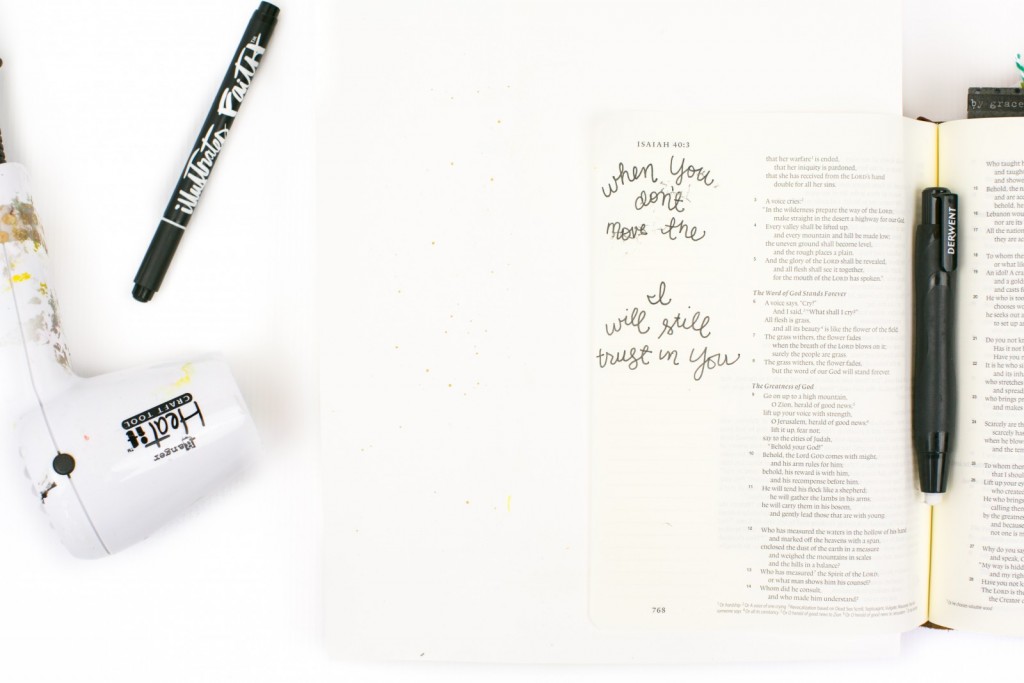 illustrated Faith
Ranger
Heat it
CRAFT TOOL
by grace
DERWENT
ISAIAH 40:3
when You
don't
move the
I
will still
trust in You
that her warfare is ended,
that her iniquity is pardoned,
that she has received from the LORD's hand
double for all her sins.
3 A voice cries:
"In the wilderness prepare the way of the LORD;
make straight in the desert a highway for our God.
4 Every valley shall be lifted up,
and every mountain and hill be made low;
the uneven ground shall become level,
and the rough places a plain.
5 And the glory of the LORD shall be revealed,
and all flesh shall see it together,
for the mouth of the LORD has spoken."
The Word of God Stands Forever
6 A voice says, "Cry!"
And I said, "What shall I cry?"
All flesh is grass,
and all its beauty is like the flower of the field.
7 The grass withers, the flower fades
when the breath of the LORD blows on it;
surely the people are grass.
8 The grass withers, the flower fades,
but the word of our God will stand forever.
The Greatness of God
9 Go on up to a high mountain,
O Zion, herald of good news;
lift up your voice with strength,
O Jerusalem, herald of good news;
lift it up, fear not;
say to the cities of Judah,
"Behold your God!"
10 Behold, the Lord GOD comes with might,
and his arm rules for him;
behold, his reward is with him,
and his recompense before him.
11 He will tend his flock like a shepherd;
he will gather the lambs in his arms;
he will carry them in his bosom,
and gently lead those that are with young.
12 Who has measured the waters in the hollow of his hand
and marked off the heavens with a span,
enclosed the dust of the earth in a measure
and weighed the mountains in scales
and the hills in a balance?
13 Who has measured the Spirit of the LORD,
or what man shows him his counsel?
14 Whom did he consult,
and who made him understand?
768
Who taught
and taught
and showed
15 Behold, the
and are
behold, he
16 Lebanon would
nor are its
17 All the nation
they are
18 To whom the
or what
19 An idol! A
and a gold
and casts
20 He who is
chooses
he seeks out
to set up
21 Do you not
Has it not
Have you
22 It is he who
and its
who stretches
and spread
23 who brings
and makes
24 Scarcely are
scarcely
when he blow
and the
25 To whom
that I should
26 Lift up your
who create
He who brings
calling them
by the greatness
and because
not one is
27 Why do you
and speak,
"My way is
and my
28 Have you not
The LORD is the
the Creator